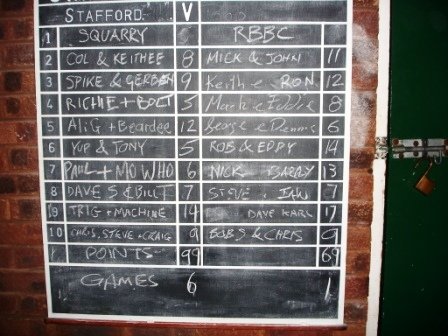 STAFFORD V
1 SQUARRY RBBC
2 COL & KEITHEE 8 MICK & JOHN 11
3 SPIKE & 9 Keith e RON 12
4 RICHIE + BOLT 5 Mark e Eddie 8
5 ALIG + Beardee 12 George e Dennis 6
6 YUP & TONY 5 ROB & EDDY 14
7 PAUL + MO WHO 6 NICK BARRY 13
8 DAVE S & BILL 7 STEVE IAN 7
9 TRIG + MACHINE 14 DAVE KARL 17
10 CHRIS, STEVE + CRAIG 9 BOB S & CHRIS 9
POINTS 99 69
GAMES 6 1